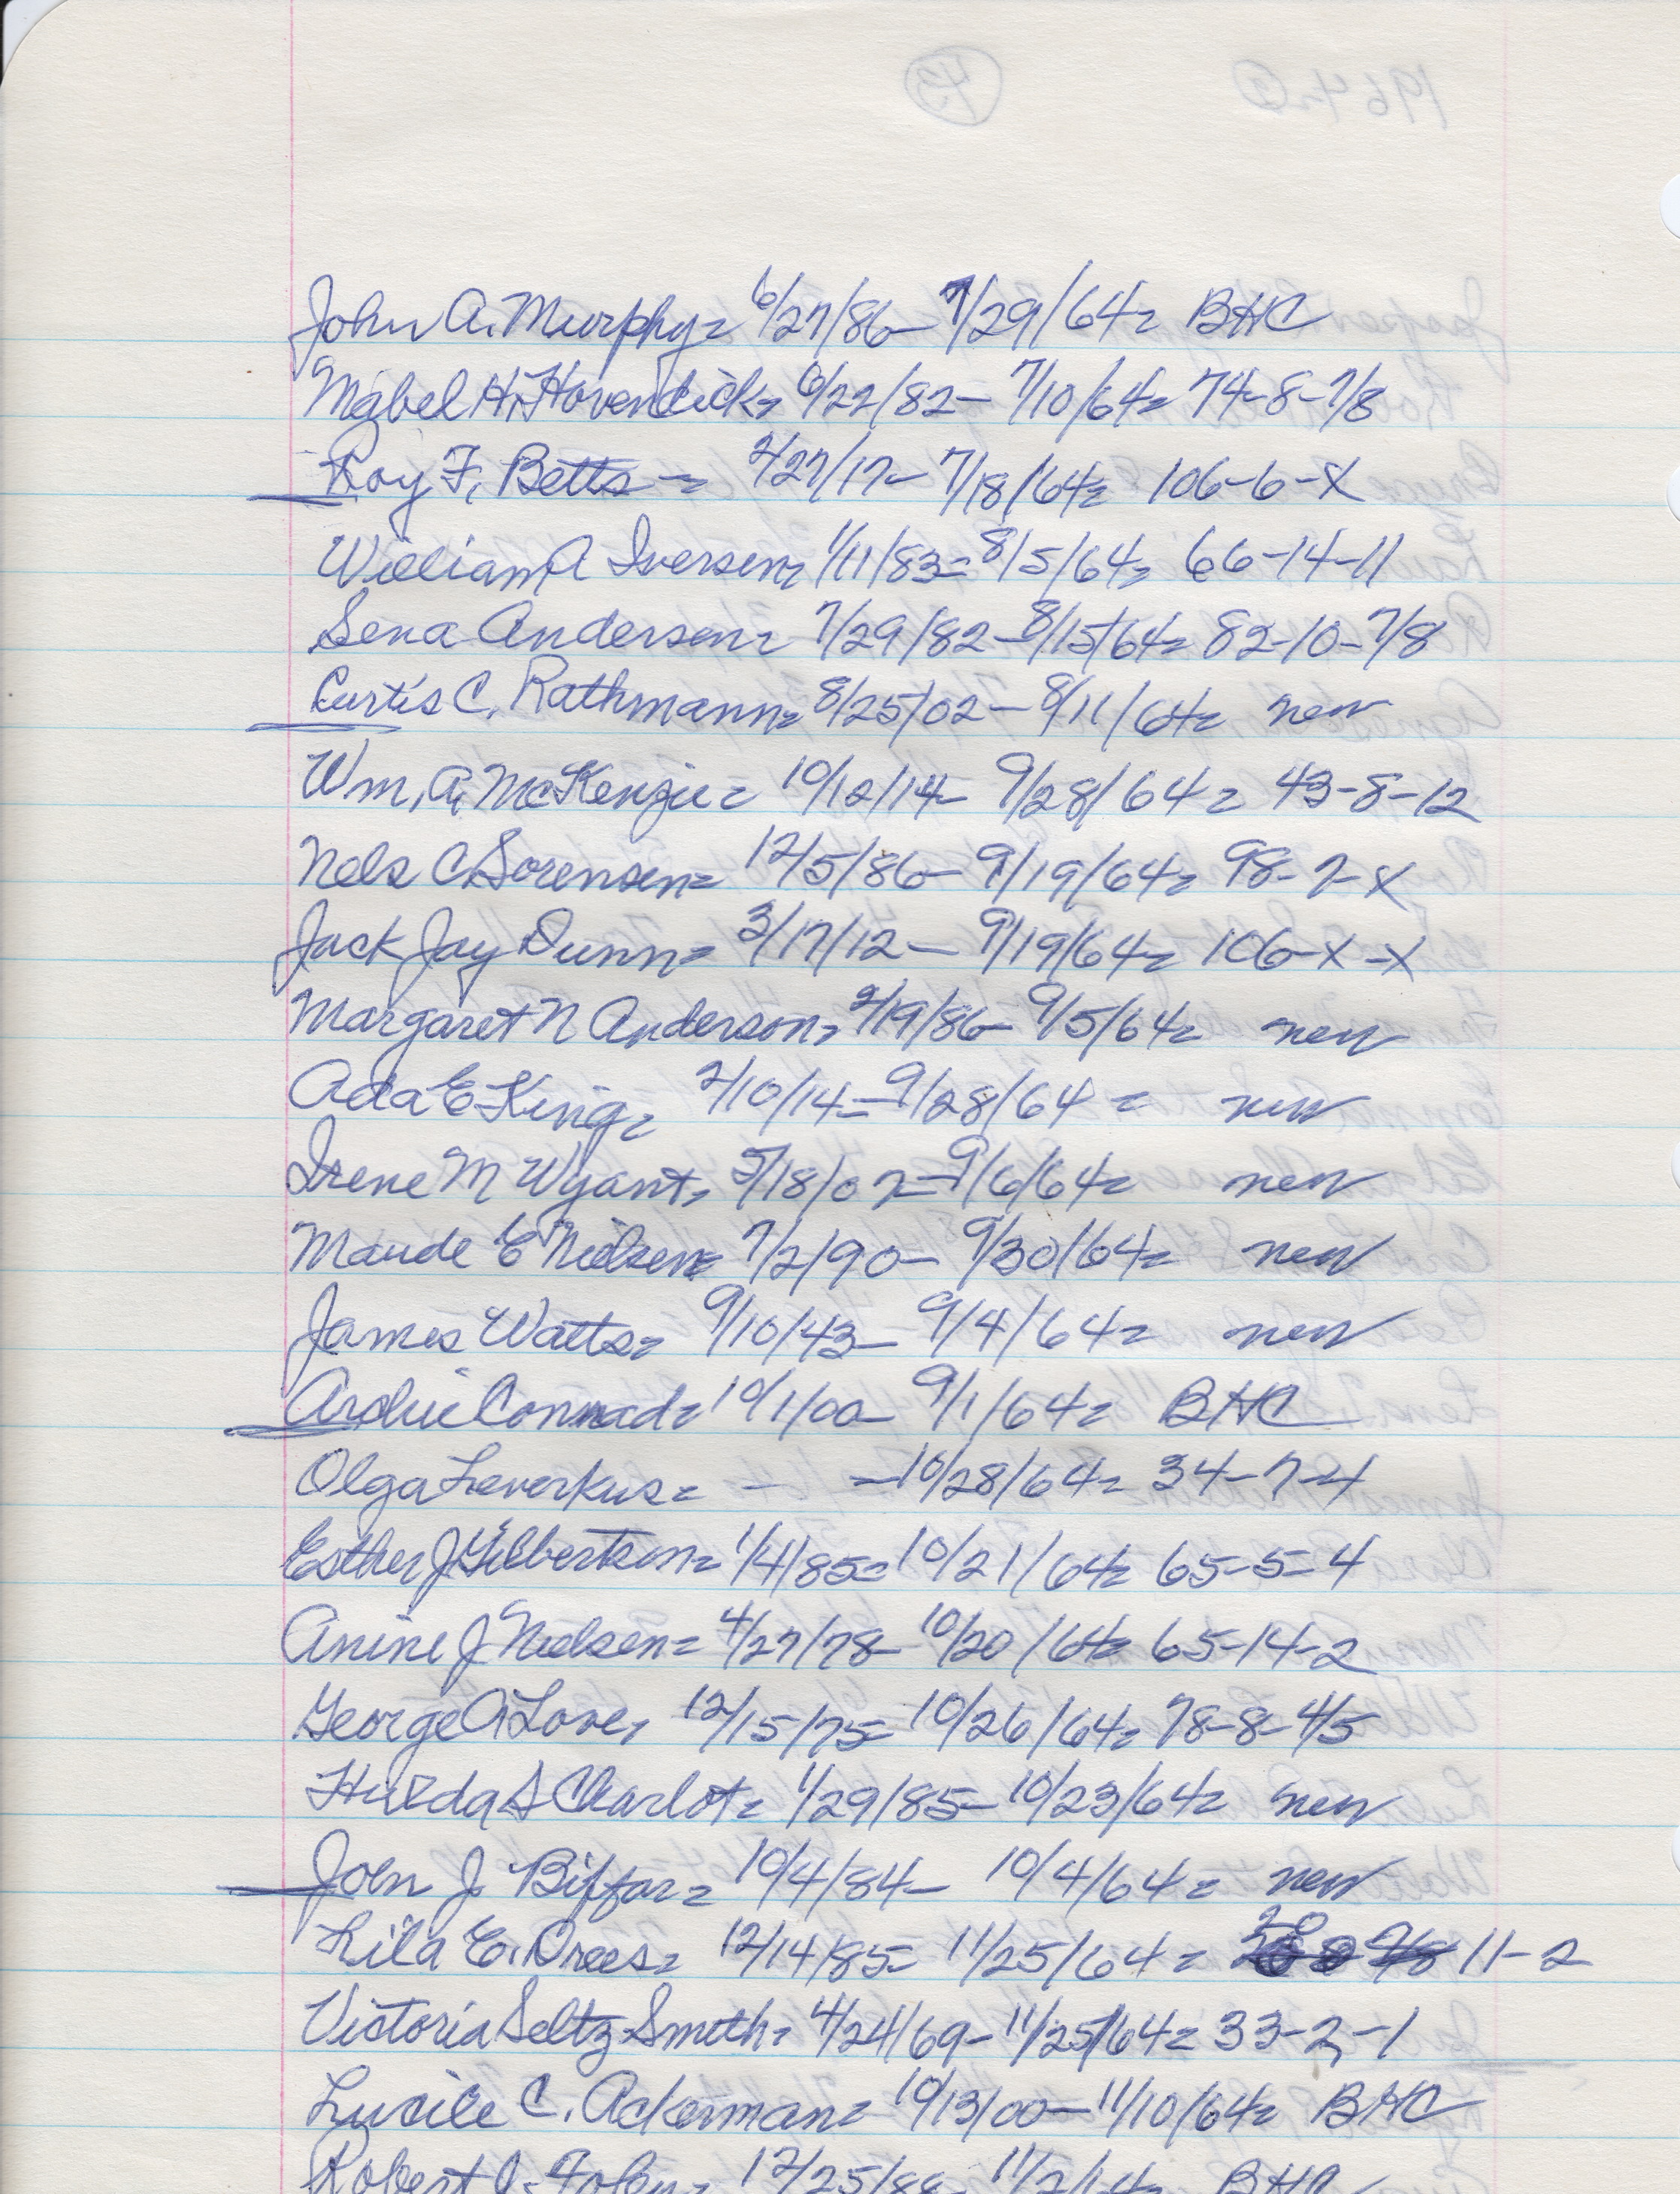 John A. Murphy= 6/27/86- 7/29/64= BHC
Mabel H. Hovendick= 6/22/82- 7/10/64= 74-8-7/8
Roy F. Betts = 2/27/17- 7/18/64= 106-6-X
William A Iversen= 1/11/83= 8/5/64= 66-14-11
Sena Andersen= 7/29/82- 8/15/64= 82-10-7/8
Curtis C. Rathmann= 8/25/02- 8/11/64= new
Wm. A. McKenzie= 10/12/14- 9/28/64= 43-8-12
Nels C. Sorensen= 12/5/86- 9/19/64= 98-2-X
Jack Jay Dunn= 3/17/12- 9/19/64= 106-X-X
Margaret N Anderson= 2/19/86- 9/5/64= new
Ada E King= 2/10/14= 9/28/64= new
Irene M Wyant= 5/18/02= 9/6/64= new
Maude E Nielsen= 7/2/90- 9/30/64= new
James Watts= 9/10/43- 9/4/64= new
Archie Connad= 10/1/00- 9/1/64= BHC
Olga Leverkus= - =10/28/64= 34-7-4
Esther J Gilbertson= 1/4/85= 10/21/64= 65-5-4
Anine J Nielsen= 4/27/78- 10/20/64= 65-14-2
George A Love= 12/15/75= 10/26/64= 78-8-4/5
Hulda S Charlot= 1/29/85- 10/23/64= new
John J Biffar= 10/4/84- 10/4/64= new
Lila E. Drees= 12/14/85= 11/25/64= 11-2
Victoria Seltz Smith= 4/24/69- 11/25/64= 33-2-1
Lucile C. Ackerman= 10/13/00- 11/10/64= BHC
Robert J. Foley= 12/25/88- 11/2/64= BHC